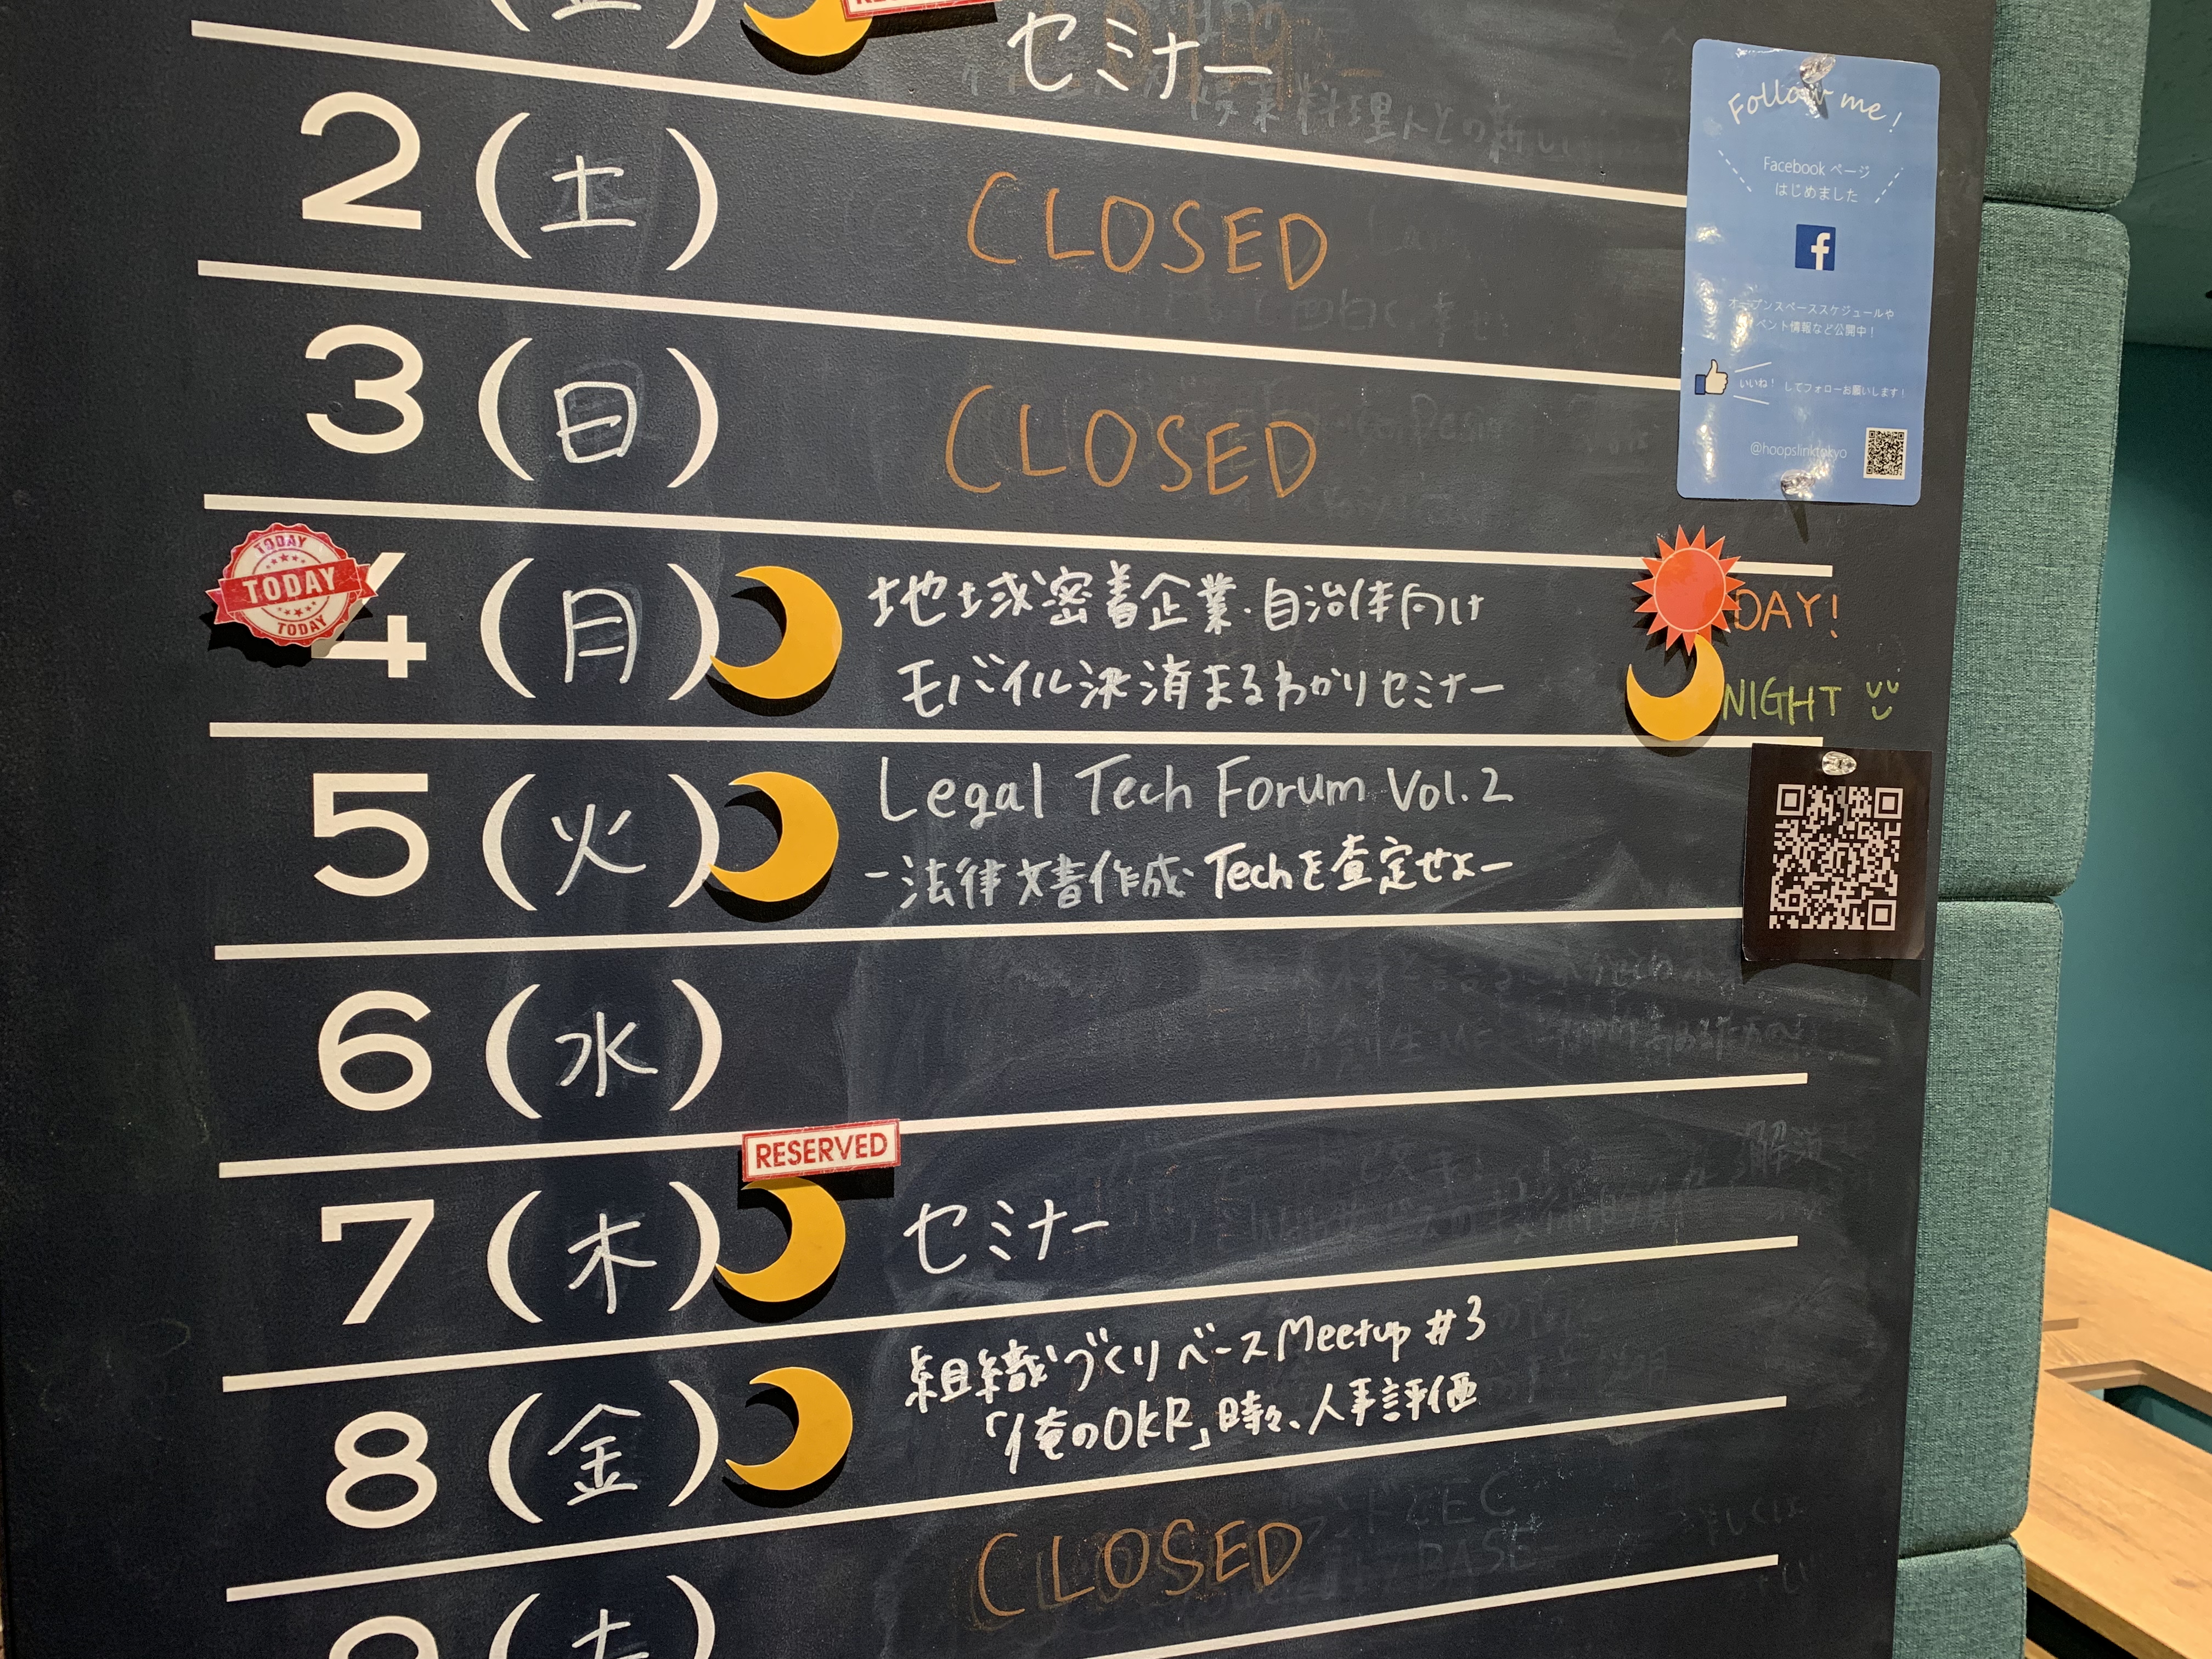 セミナー
2 (土) CLOSED
Follow me!
Facebook ページ
はじめました
オープンスペーススケジュールや
イベント情報など公開中!
いいね! してフォローお願いします!
@hoopslinktokyo
3 (日) CLOSED
TODAY
TODAY
TODAY
4 (月) 地域密着企業・自治体向け
モバイル決済まるわかりセミナー
DAY!
NIGHT
5 (火) Legal Tech Forum Vol.2
-法律文書作成 Techを査定せよ-
6 (水)
RESERVED
7 (木) セミナー
8 (金) 組織づくりベース Meetup #3
「俺のOKR」時々、人事評価
CLOSED